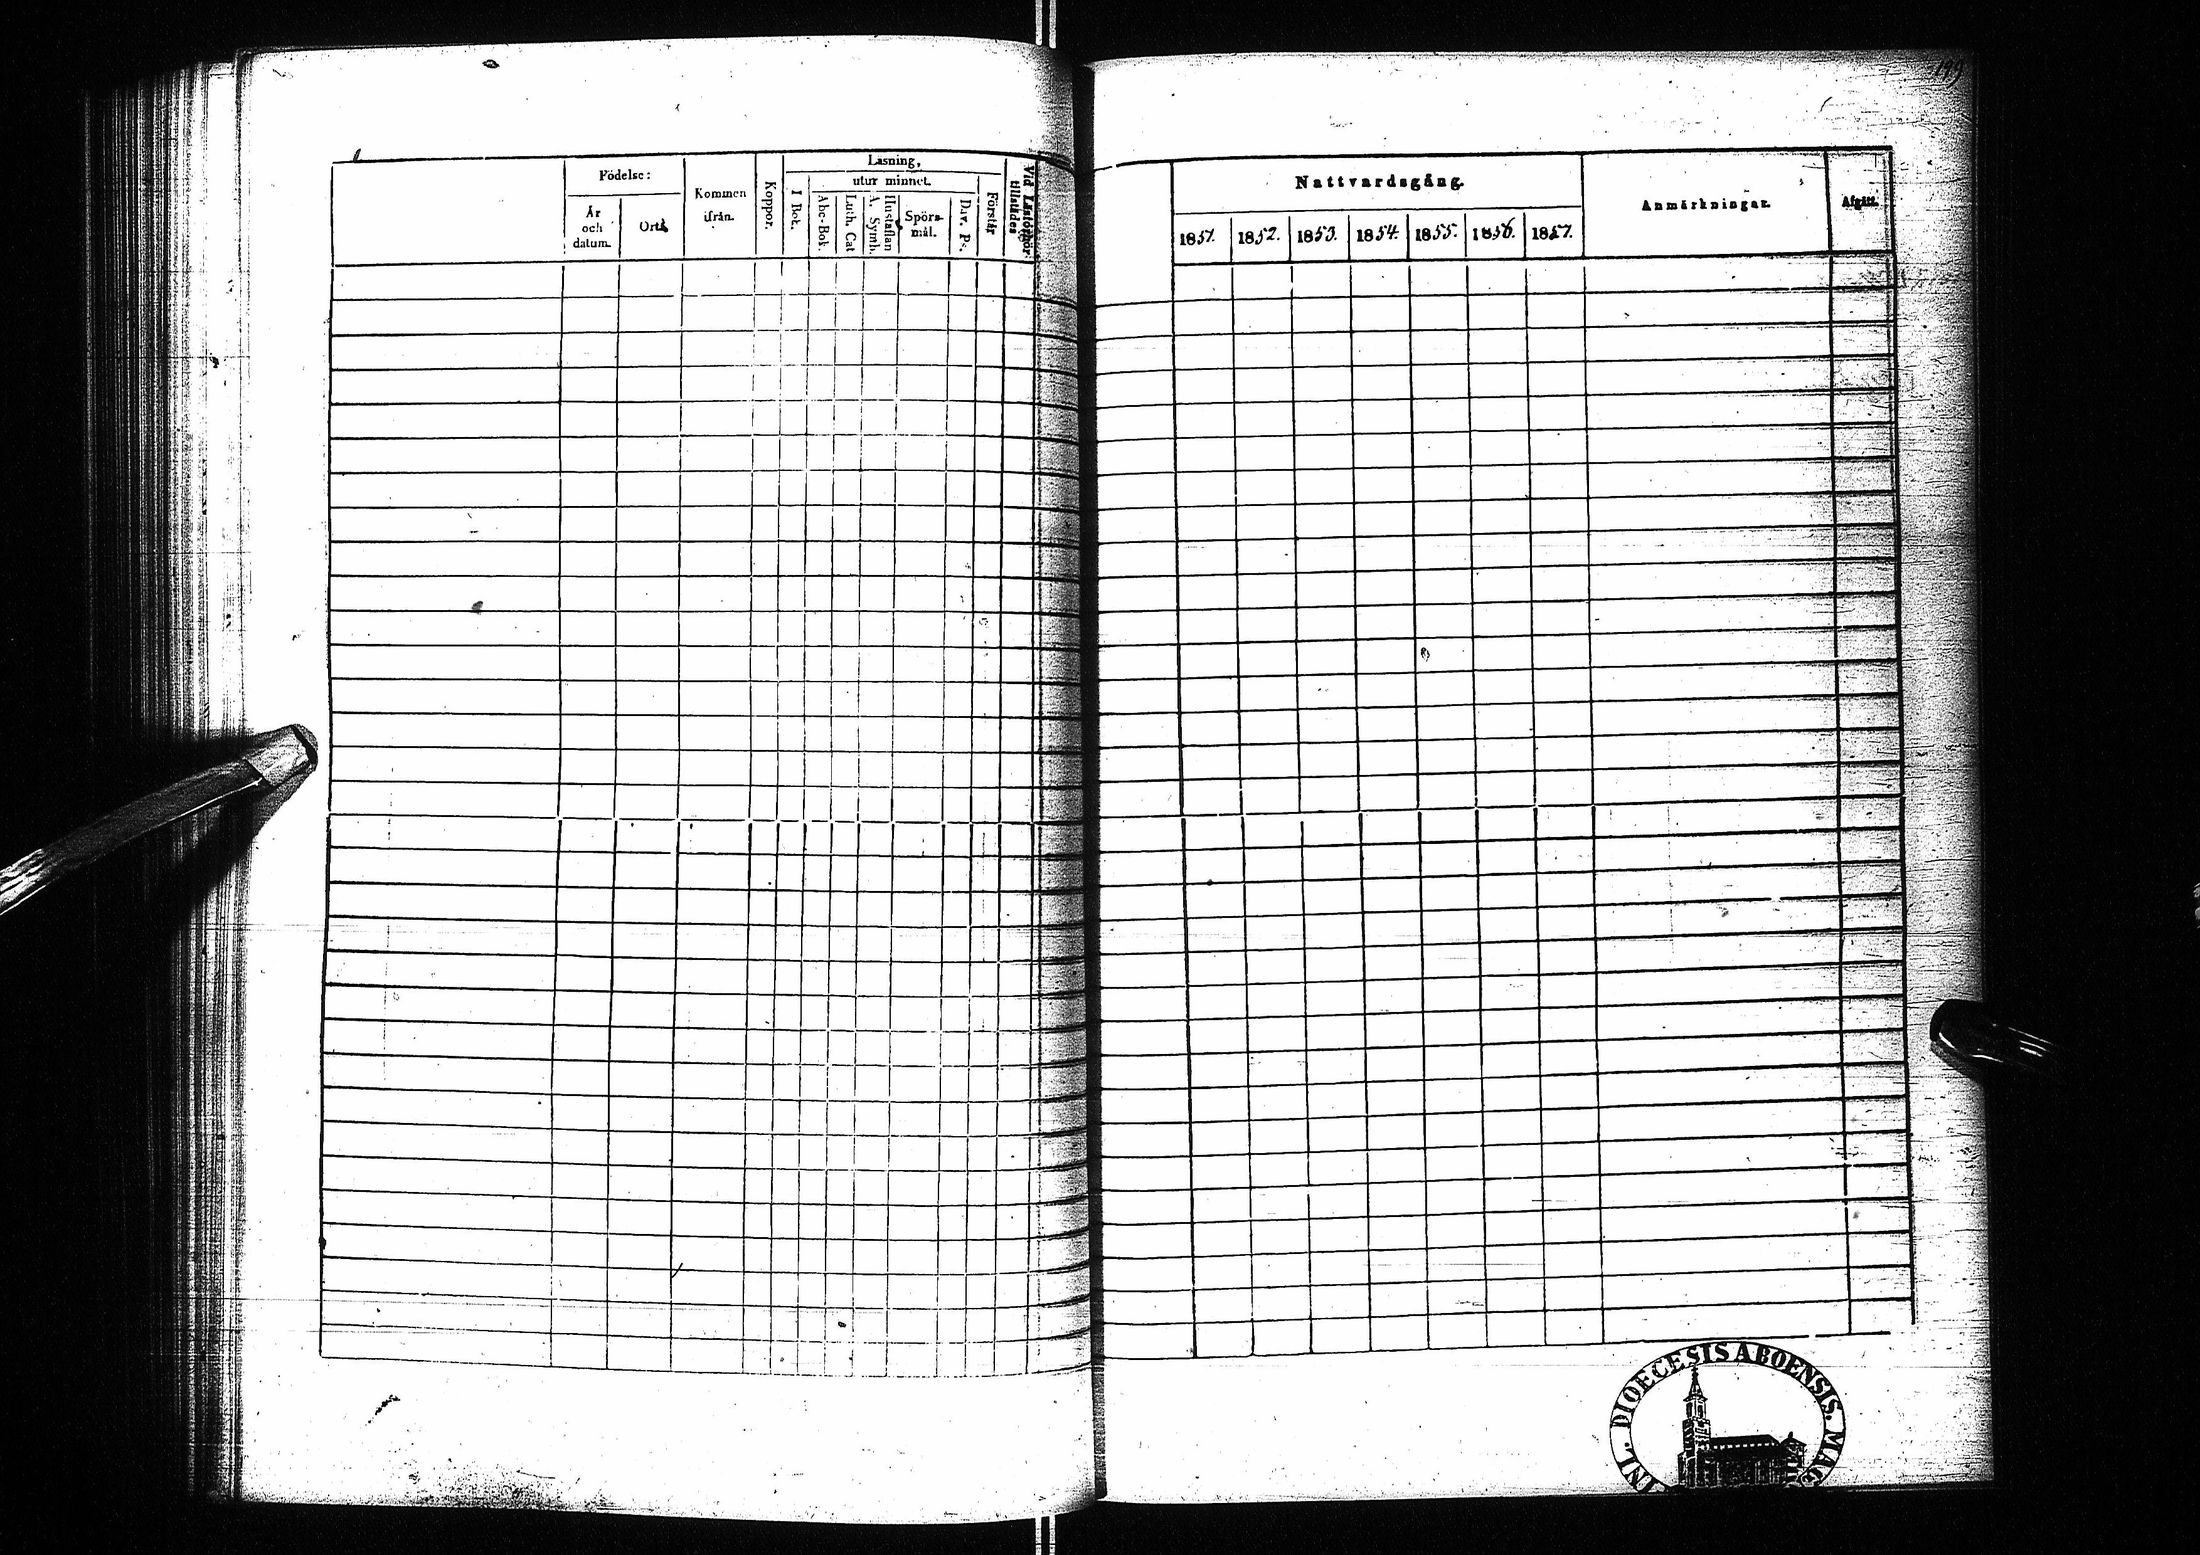 Födelse:
År
och
datum.
Ort.
Kommen
ifrån.
Koppor.
Läsning,
I Bok.
utur minnet.
Abc-Bok.
Luth. Cat
Hustaflan
A. Symb.
Spörs-
mål.
Dav. Ps.
Förstår
Vid Läsförhör
tillstädes
199
Nattvardsgång.
1851.
1852.
1853.
1854.
1855.
1856.
1857.
Anmärkningar.
Afgått.
DIOECESIS ABOENSIS.